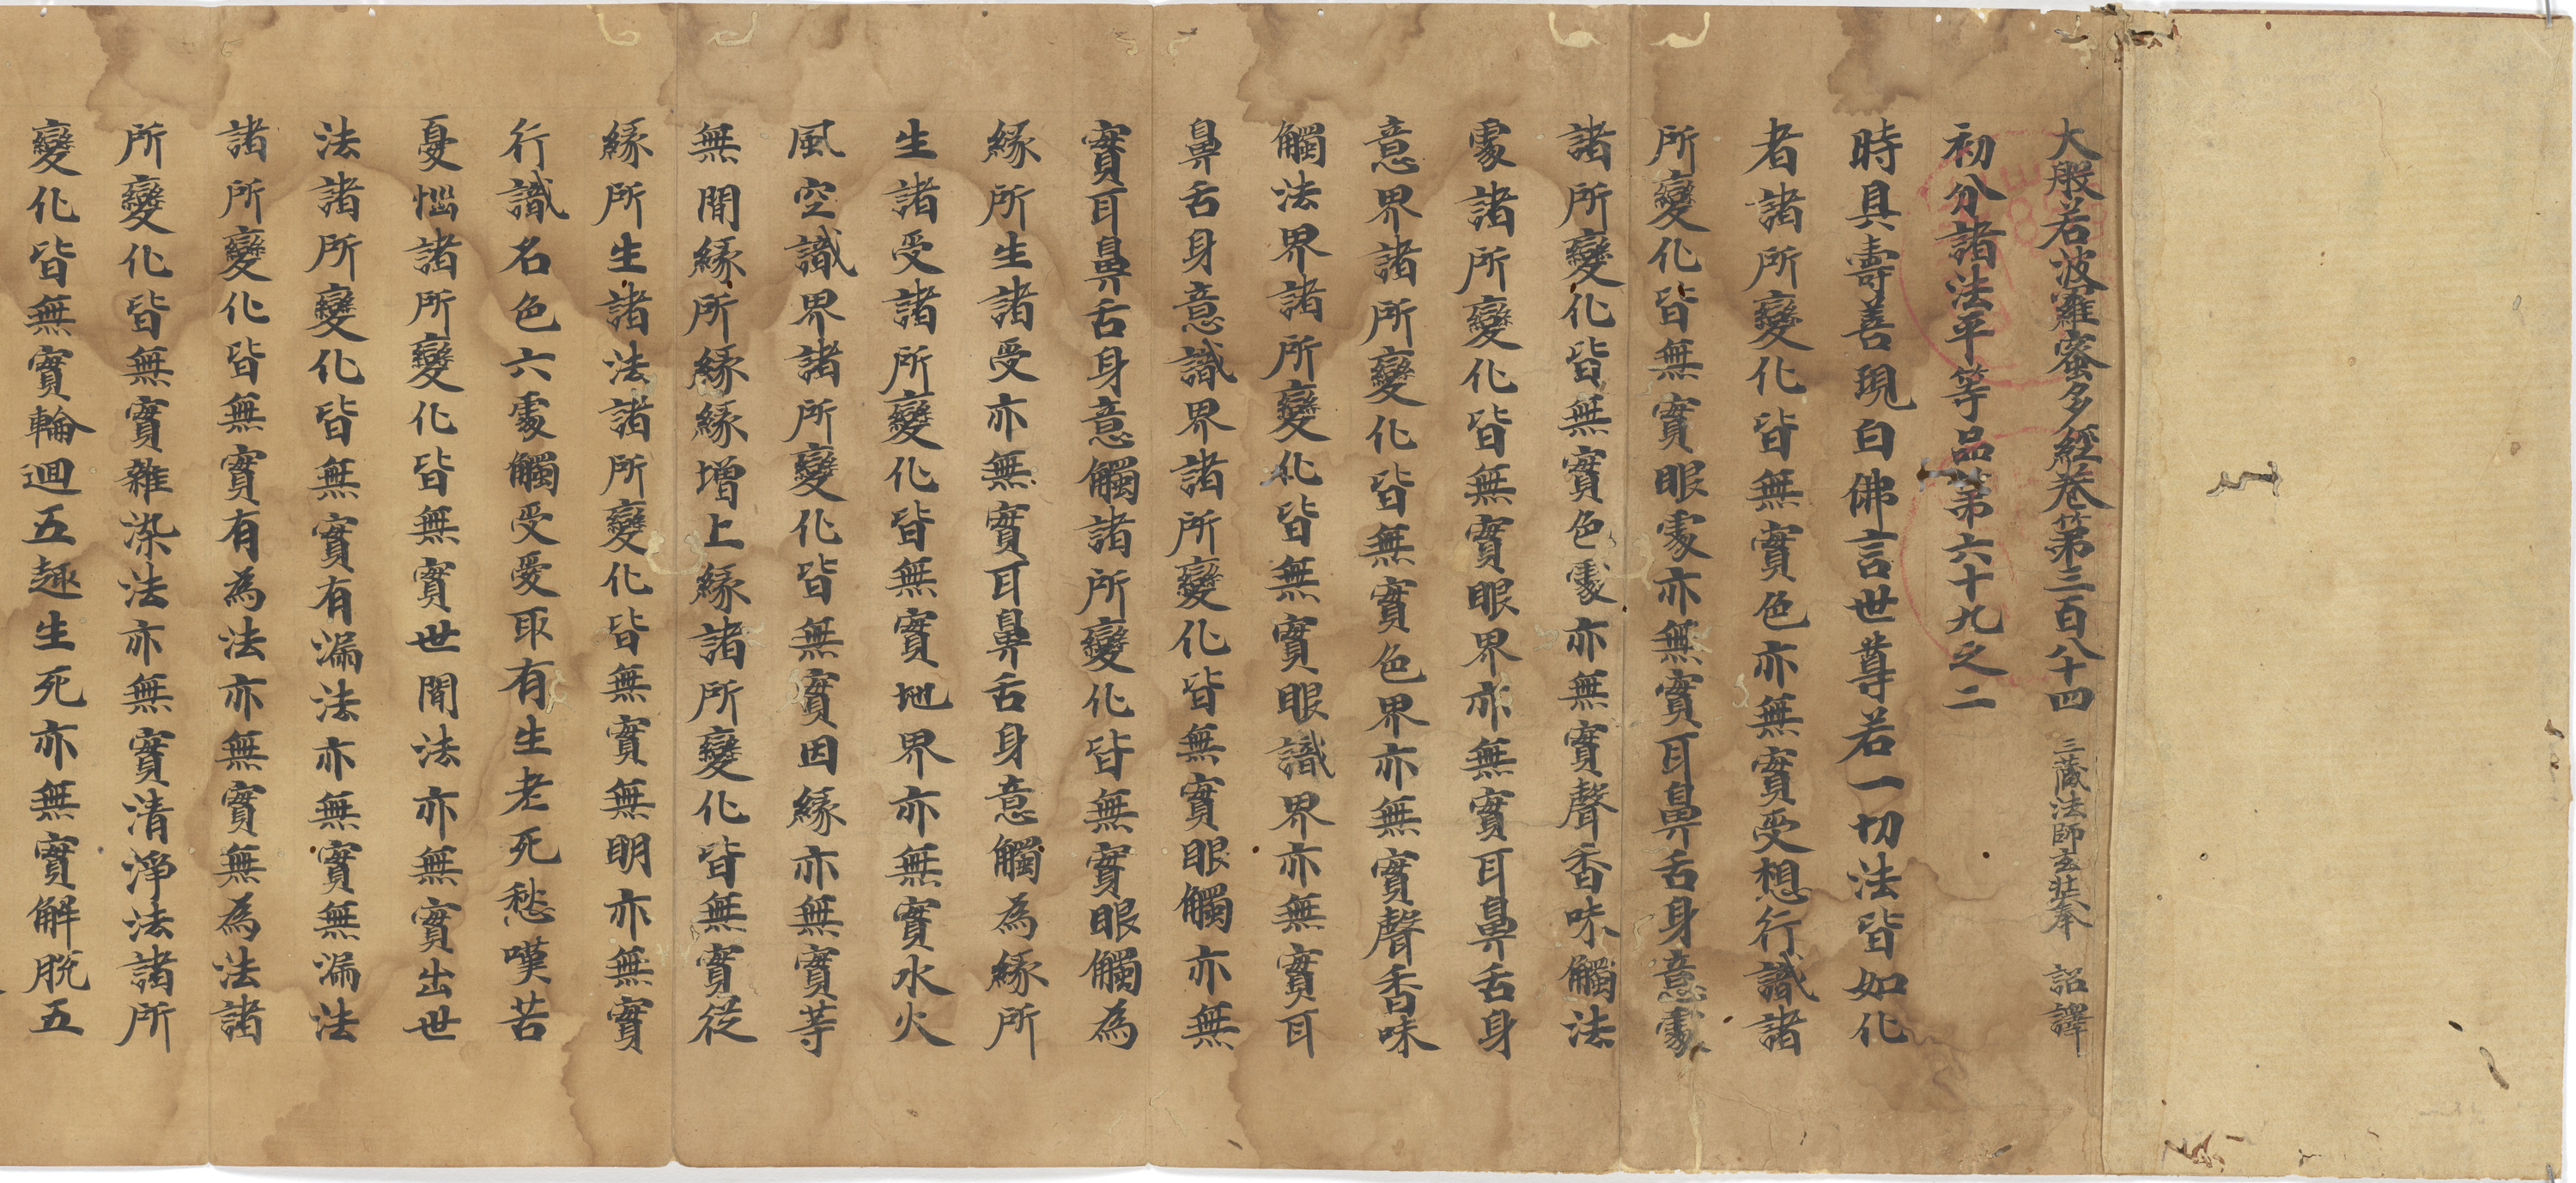 大般若波羅蜜多經卷第三百八十四　三藏法師玄奘奉　詔譯
初分諸法平等品第六十九之二
時具壽善現白佛言世尊若一切法皆如化
者諸所變化皆無實色亦無實受想行識諸
所變化皆無實眼處亦無實耳鼻舌身意處
諸所變化皆無實色處亦無實聲香味觸法
處諸所變化皆無實眼界亦無實耳鼻舌身
意界諸所變化皆無實色界亦無實聲香味
觸法界諸所變化皆無實眼識界亦無實耳
鼻舌身意識界諸所變化皆無實眼觸亦無
實耳鼻舌身意觸諸所變化皆無實眼觸為
緣所生諸受亦無實耳鼻舌身意觸為緣所
生諸受諸所變化皆無實地界亦無實水火
風空識界諸所變化皆無實因緣亦無實等
無間緣所緣緣增上緣諸所變化皆無實從
緣所生諸法諸所變化皆無實無明亦無實
行識名色六處觸受愛取有生老死愁嘆苦
憂惱諸所變化皆無實世間法亦無實出世
法諸所變化皆無實有漏法亦無實無漏法
諸所變化皆無實有為法亦無實無為法諸
所變化皆無實雜染法亦無實清淨法諸所
變化皆無實輪迴五趣生死亦無實解脫五